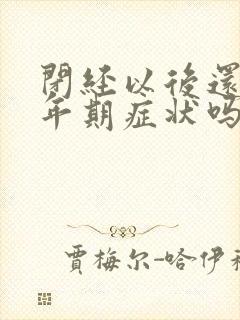 閉经以後還
年期症状吗
賈梅尔-哈伊